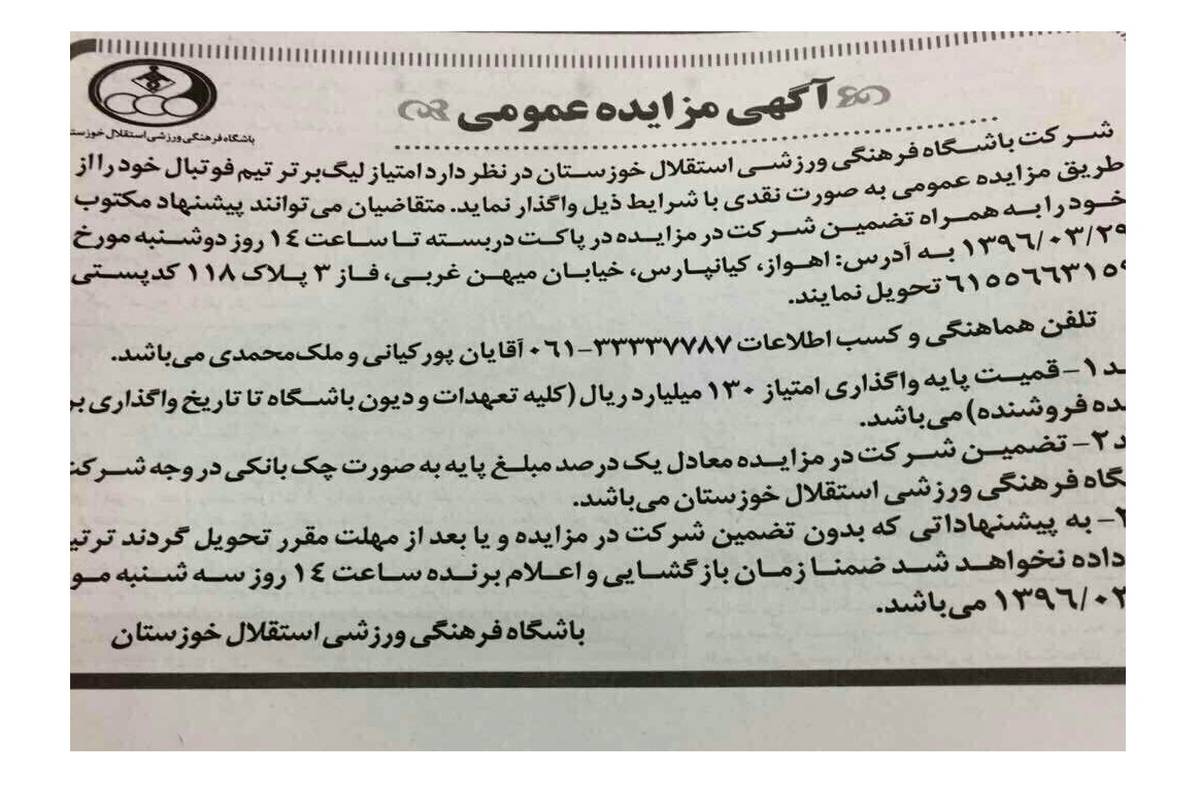 آگهی مزایده عمومی
باشگاه فرهنگی ورزشی استقلال
شرکت باشگاه فرهنگی ورزشی استقلال خوزستان در نظر دارد امتیاز لیگ برتر تیم فوتبال خود را از
طریق مزایده عمومی به صورت نقدی با شرایط ذیل واگذار نماید. متقاضیان می‌توانند پیشنهاد مکتوب
خود را به همراه تضمین شرکت در مزایده در پاکت دربسته تا ساعت ۱۴ روز دوشنبه مورخ
۱۳۹۶/۰۳/۲۹ به آدرس: اهواز، کیانپارس، خیابان میهن غربی، فاز ۳ پلاک ۱۱۸ کدپستی
۶۱۵۵۶۶۳۱۵۹ تحویل نمایند.
تلفن هماهنگی و کسب اطلاعات ۳۳۳۳۷۷۸۷-۰۶۱ آقایان پورکیانی و ملک‌محمدی می‌باشد.
۱- قمیت پایه واگذاری امتیاز ۱۳۰ میلیارد ریال (کلیه تعهدات و دیون باشگاه تا تاریخ واگذاری
فروشنده) می‌باشد.
۲- تضمین شرکت در مزایده معادل یک درصد مبلغ پایه به صورت چک بانکی در وجه شرکت
فرهنگی ورزشی استقلال خوزستان می‌باشد.
- به پیشنهاداتی که بدون تضمین شرکت در مزایده و یا بعد از مهلت مقرر تحویل گردند
داده نخواهد شد ضمنا زمان بازگشایی و اعلام برنده ساعت ۱۴ روز سه شنبه
می‌باشد.
باشگاه فرهنگی ورزشی استقلال خوزستان